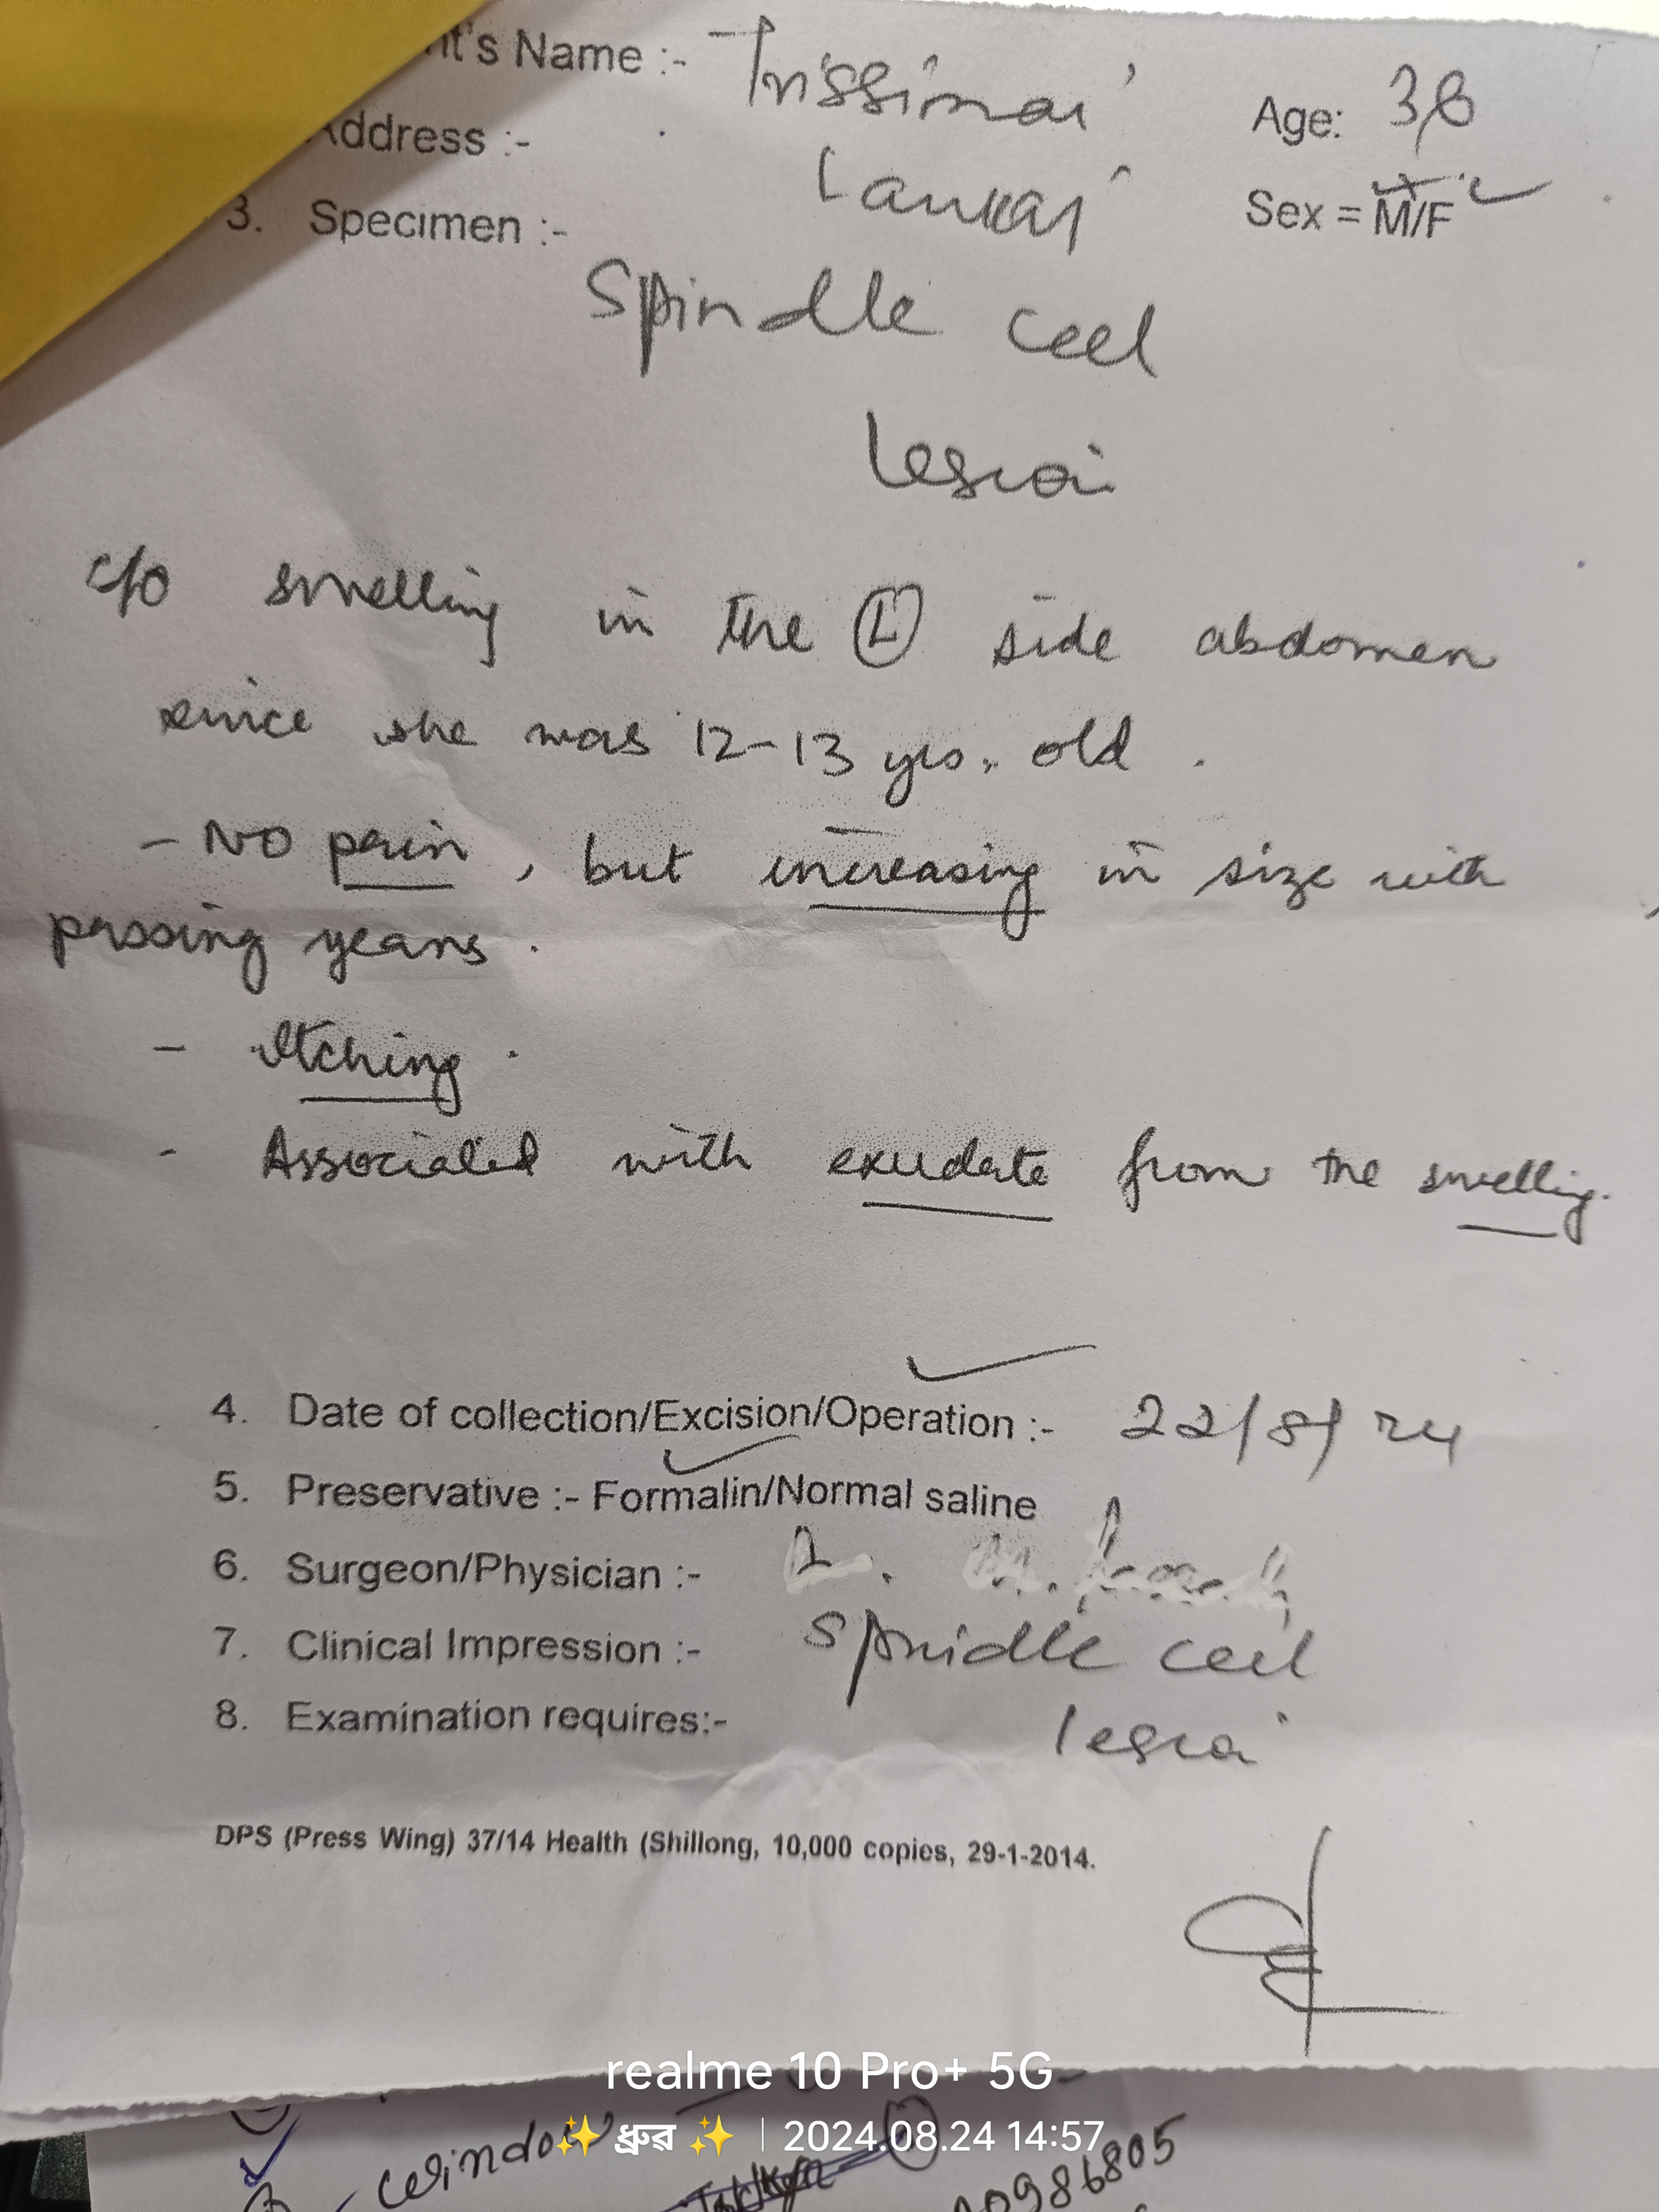 nt's Name :- Trissimai Age: 38
Address :- Lankai Sex = M/F
3. Specimen :-
Spindle cell
lesion
c/o swelling in the (L) side abdomen
since she was 12-13 yrs. old .
- NO pain , but increasing in size with
passing years .
- Itching .
- Associated with exudate from the swelling.
4. Date of collection/Excision/Operation :- 22/8/24
5. Preservative :- Formalin/Normal saline
6. Surgeon/Physician :-
7. Clinical Impression :- Spindle cell
8. Examination requires:- lesion
DPS (Press Wing) 37/14 Health (Shillong, 10,000 copies, 29-1-2014.
realme 10 Pro+ 5G
✨ ধ্ৰুৱ ✨ | 2024.08.24 14:57
0986805